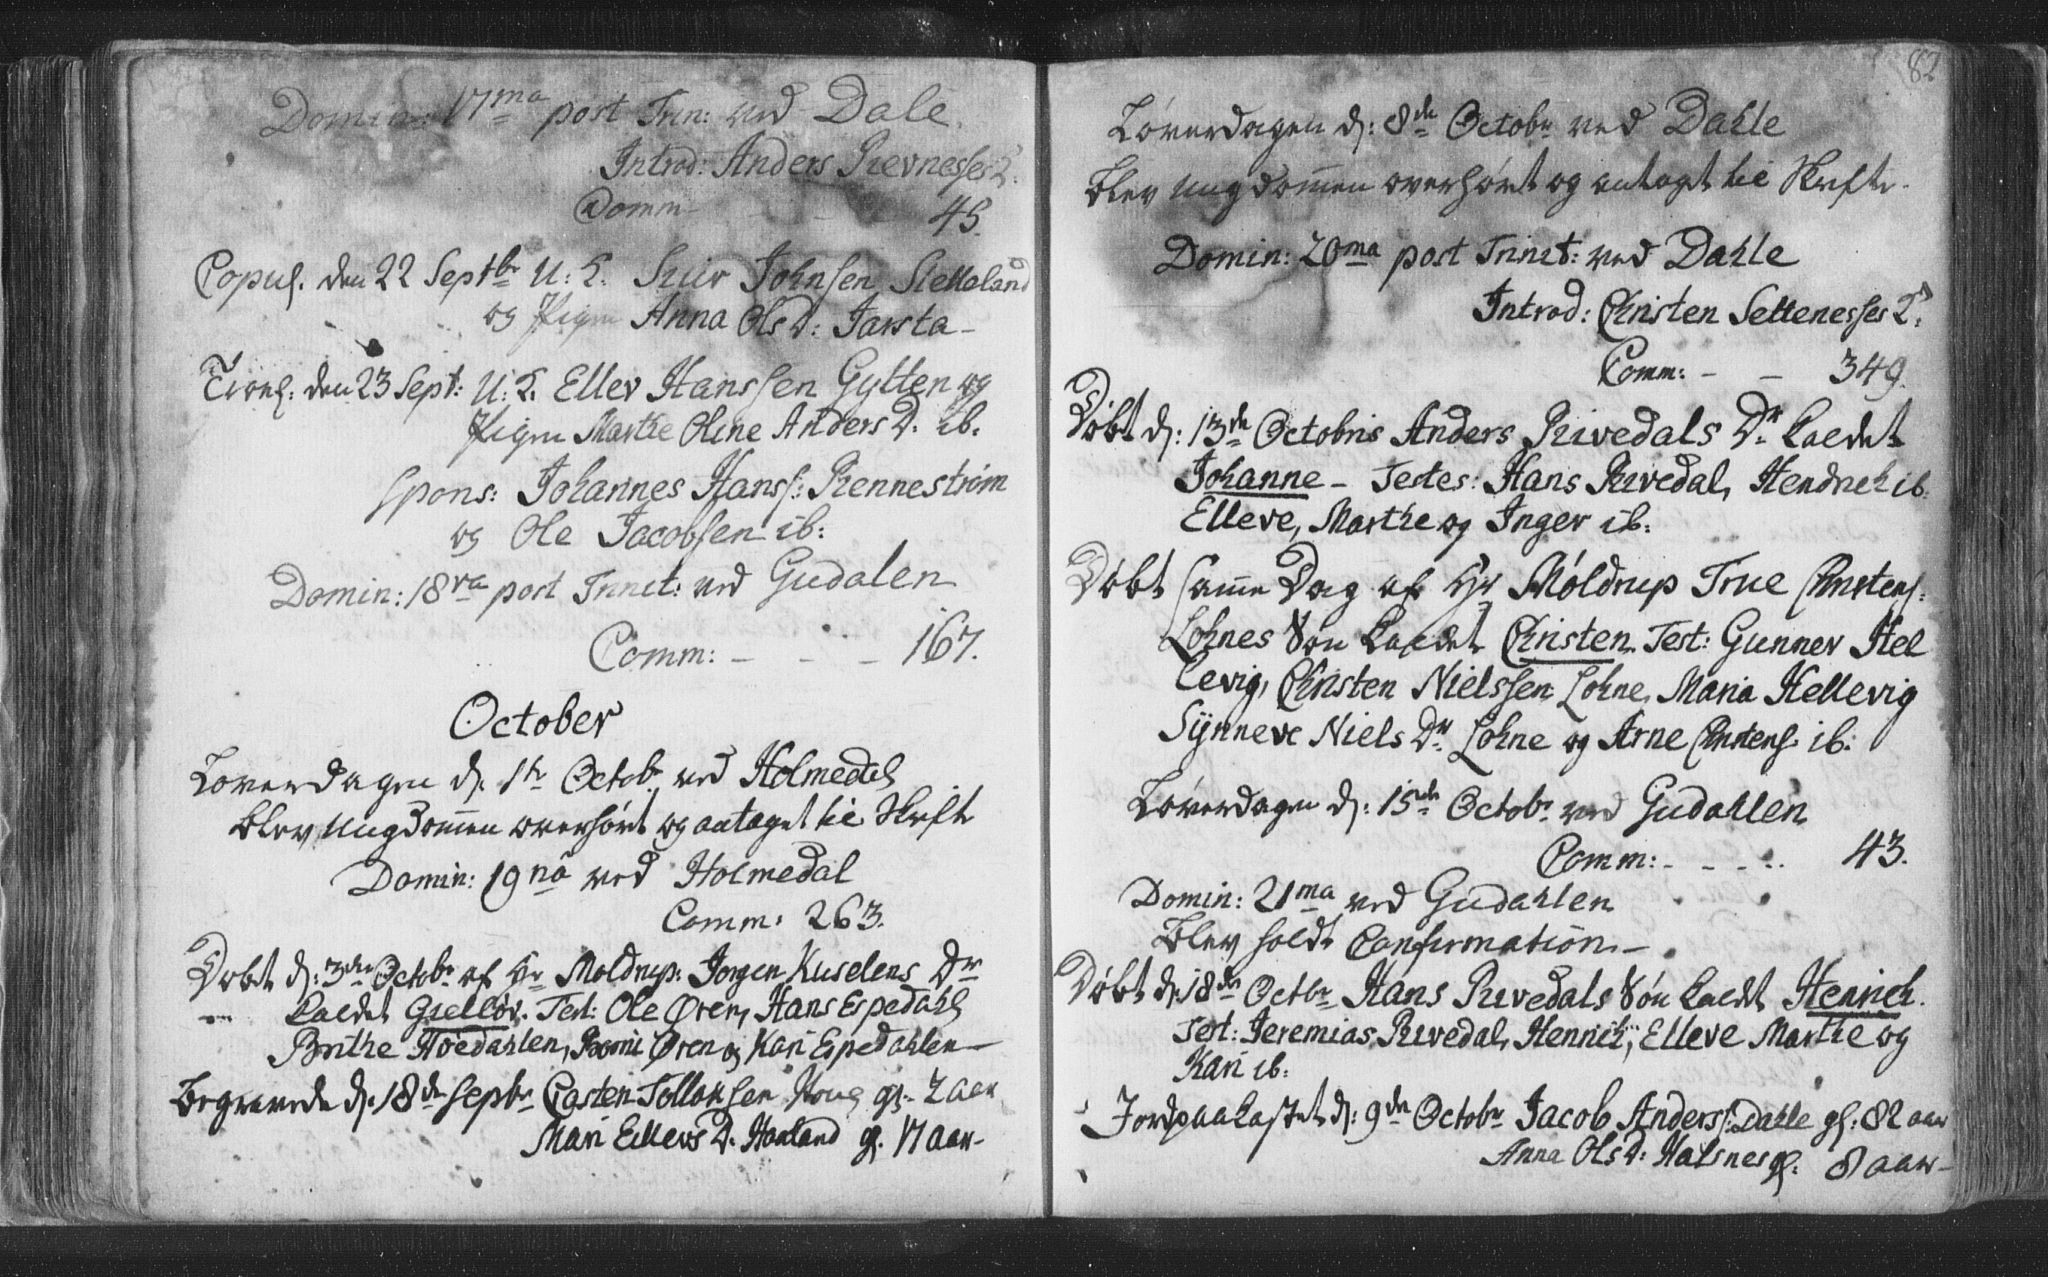 Domin: 17ma post Trin: ved Dale.
Introd: Anders Revnesses Q.
Comm - - - 45.
Copul. den 22 Septbr U: K. Siur Johnsen Sletteland
og Pigen Anna OlsD: Jarsta-
Trol. den 23 Sept: U: K. Ellev Hanssen Gytten og
Pigen Marthe Oline Anders D. ib.
Spons: Johannes Hanss: Rennestrøm
og Ole Jacobsen ib:
Domin: 18va post Trinit: ved Gudalen
Comm: - - - 167.
October
Løverdagen d. 1te Octobr ved Holmedal
blev Ungdommen overhørt og antaget til Skrifte
Domin: 19na ved Holmedal
Comm: 263.
Døbt d: 3die Octobr af Hr Moldrup: Jorgen Kuselens Dr
kaldet Giellør. Test: Ole Øren, Hans Espedahl
Brithe Høedahlen, Øren og Kari Espedahlen-
Begravede d. 18de Septbr Casten Tollonsen gl. 2 aar
Mari Ellevs D. Haaland gl. 17 aar-
82
Løverdagen d: 8de Octobr ved Dahle
blev Ungdommen overhørt og antaget til Skrifte.
Domin: 20ma post Trinit: ved Dahle
Introd: Christen Settenesses Q.
Comm: - - 349.
Døbt d: 13de Octobris Anders Rivedals Dr kaldet
Johanne - Testes: Hans Rivedal, Hendrich ib:
Elleve, Marthe og Inger ib:
Døbt samme Dag af Hr Møldrup True Christens:
Lohnes Søn kaldet Christen. Test: Gunner Hel
levig, Christen Nielssen Lohne, Maria Hellevig
Sÿnneve Niels Dr Lohne og Arne Christens ib:
Løverdagen d: 15de Octobr ved Gudahlen
Comm: - - - - 43.
Domin: 21ma ved Gudahlen
blev holdt Confirmation-
Døbt d: 18de Octbr Hans Rivedals Søn kaldt Henrich.
Test: Jeremias Rivedal, Henrich, Elleve Marthe og
Kari ib:
Jordpaakastet d: 9de Octobr Jacob Anderss: Dahle gl: 82 aar
Anna Ols D: Halsnes gl: 8 aar-